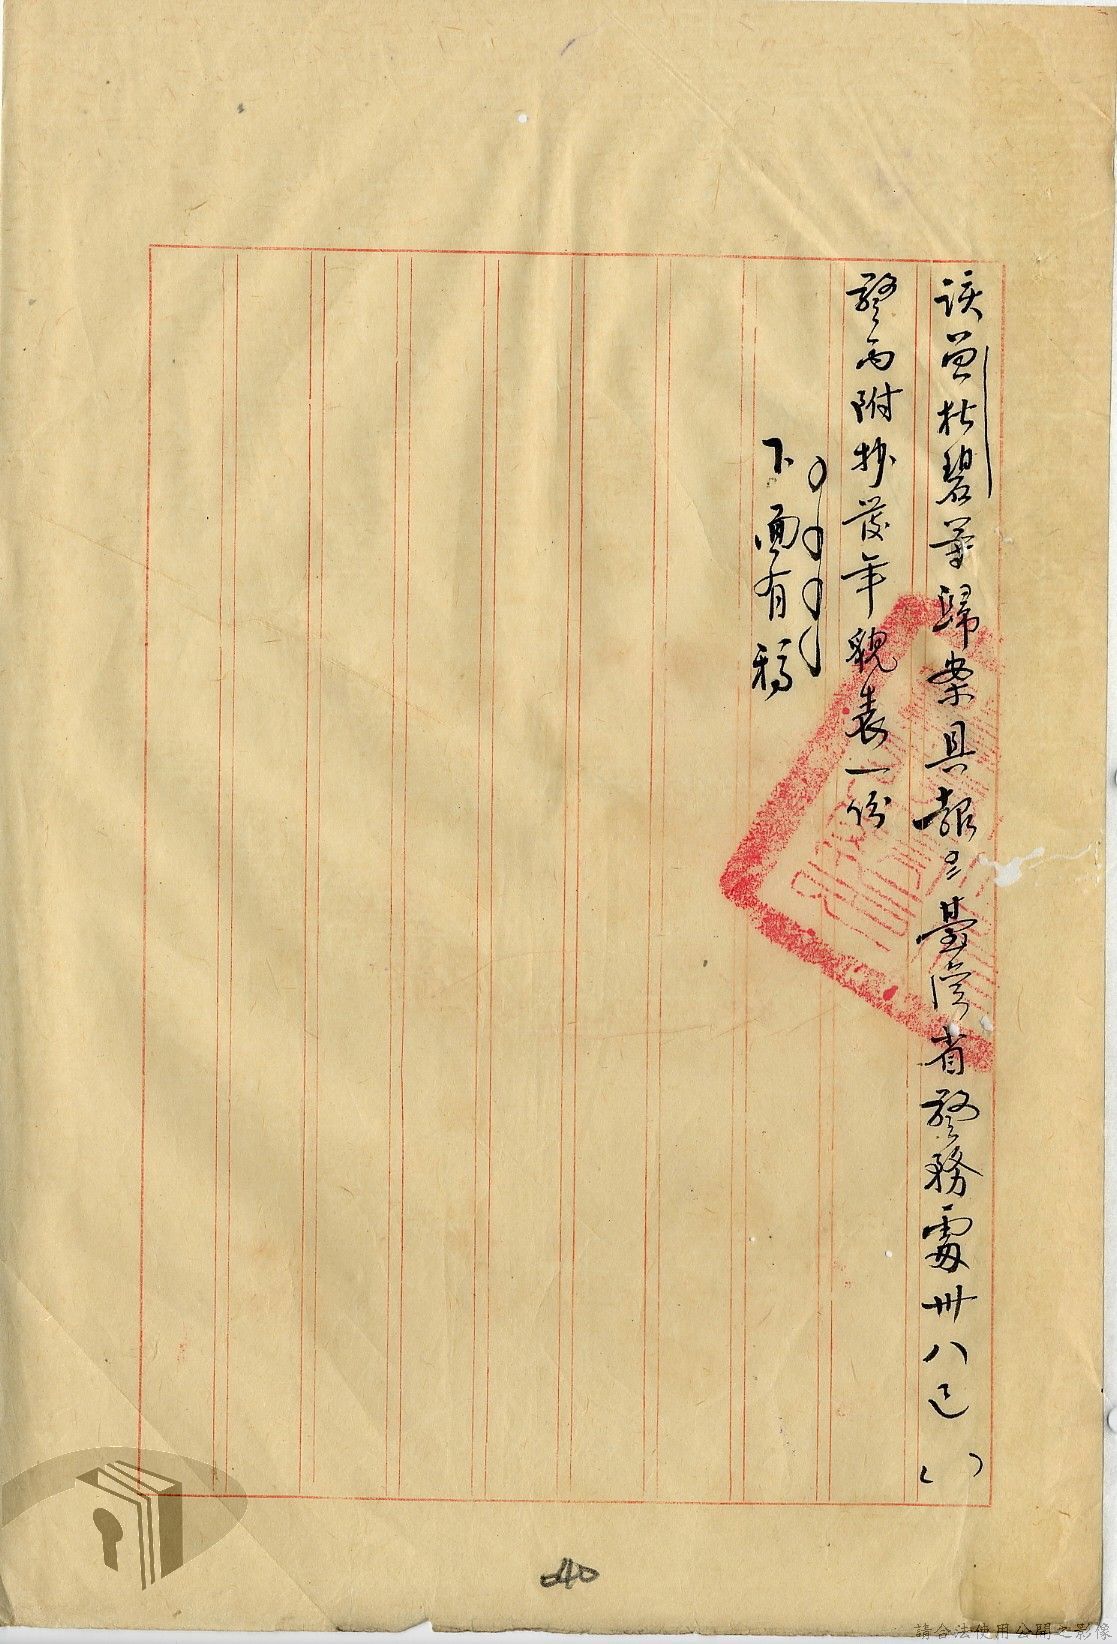 該曾杜碧等歸案具報臺灣省警務處卅八巳( )
警丙附抄發年貌表一份
下面有稿
040
請合法使用公開之影像